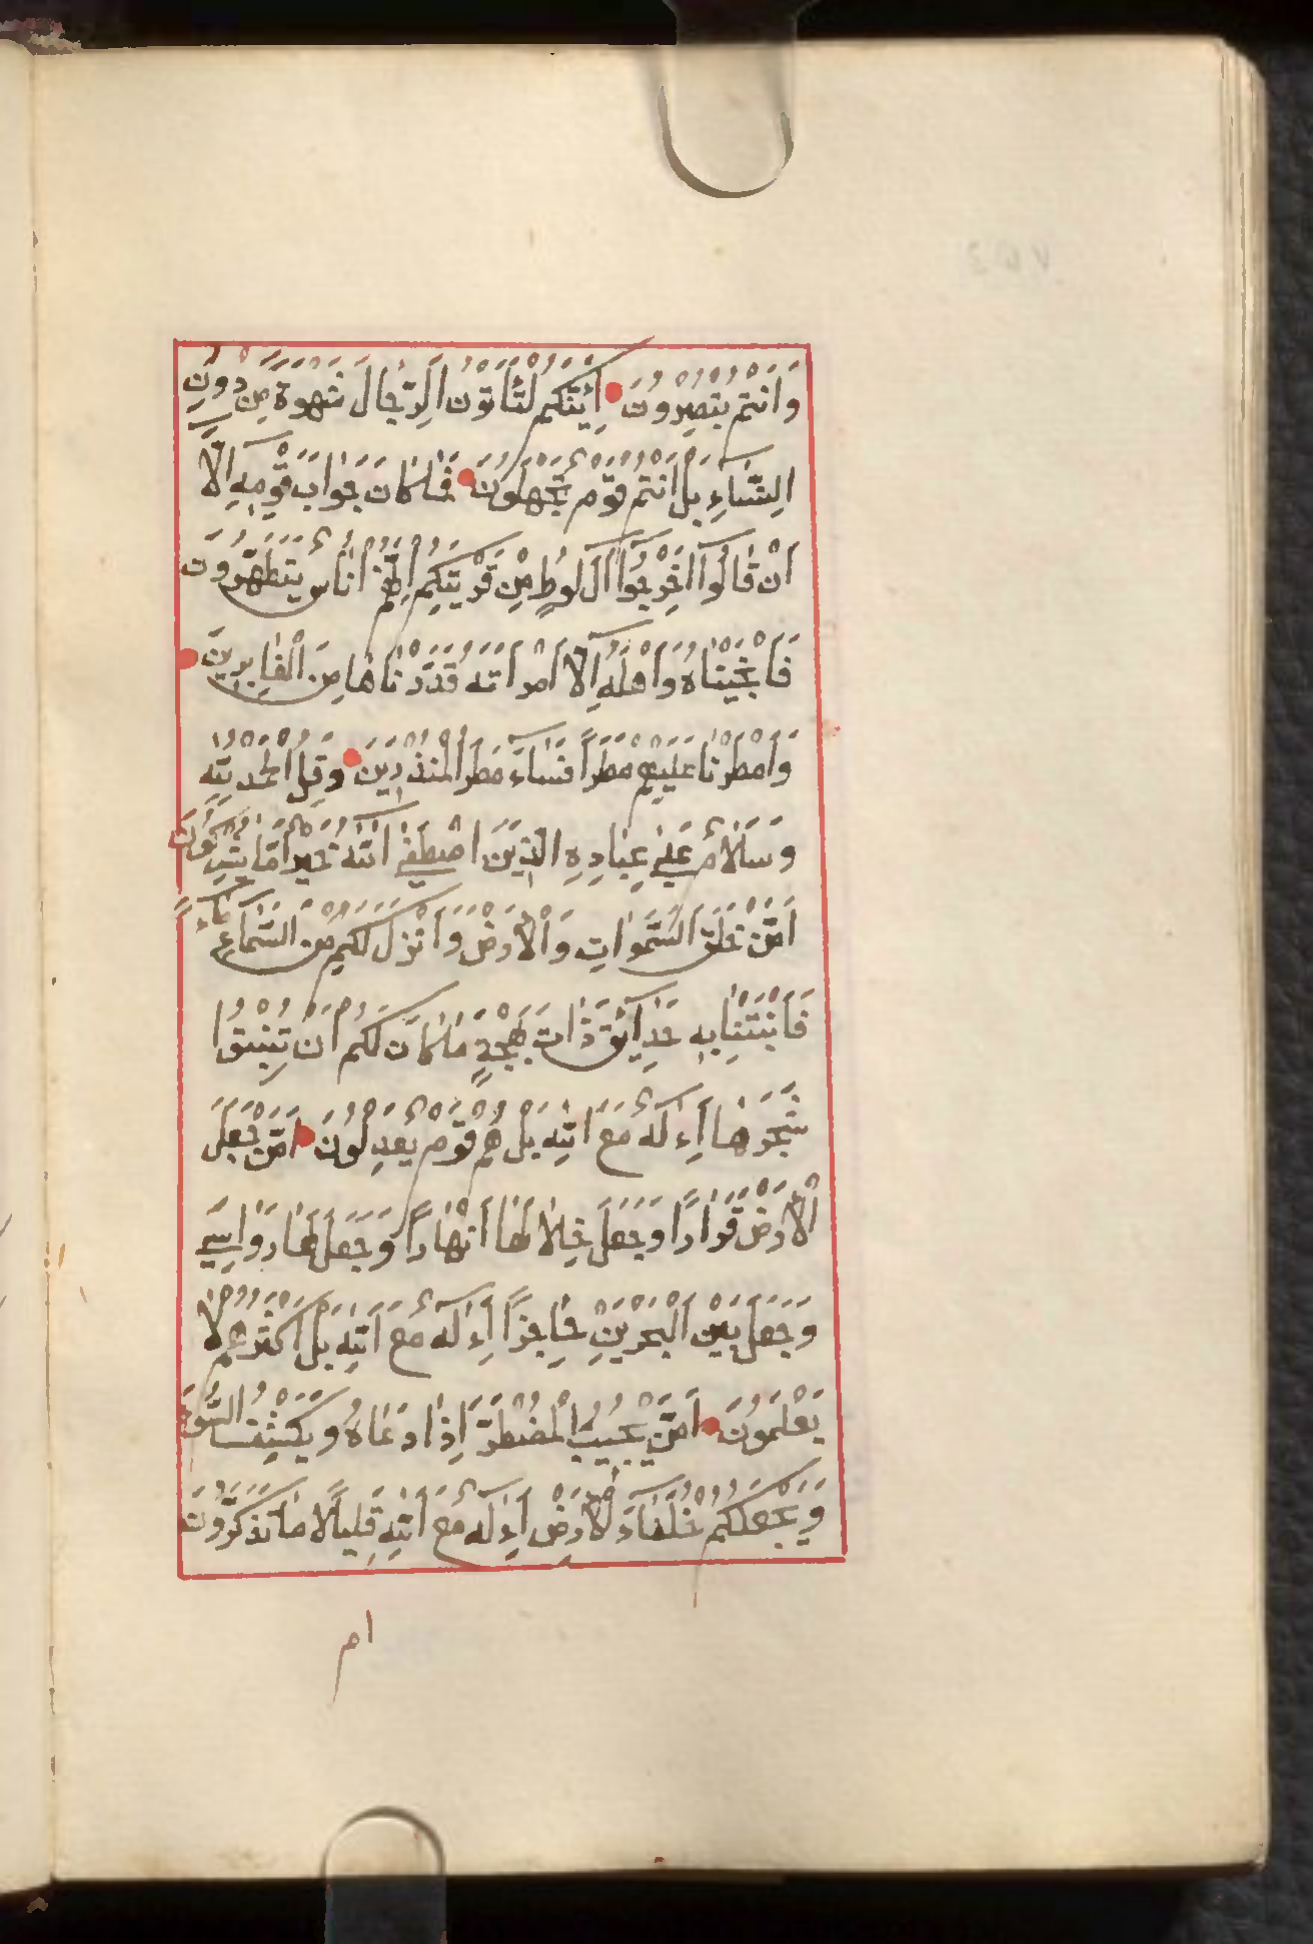 وَاَنْتُمْ تُبْصِرُونَ اَئِنَّكُمْ لَتَأْتُوْنَ الرِّجَالَ شَهْوَةً مِّنْ دُونِ
النِّسَآءِ بَلْ اَنْتُمْ قَوْمٌ تَجْهَلُونَ فَمَا كَانَ جَوَابَ قَوْمِهٖ اِلَّآ
اَنْ قَالُوٓا اَخْرِجُوٓا اٰلَ لُوطٍ مِّنْ قَرْيَتِكُمْ اِنَّهُمْ اُنَاسٌ يَتَطَهَّرُونَ
فَاَنْجَيْنَاهُ وَاَهْلَهُٓ اِلَّا امْرَاَتَهُ قَدَّرْنَاهَا مِنَ الْغَابِرِينَ
وَاَمْطَرْنَا عَلَيْهِمْ مَطَرًا فَسَآءَ مَطَرُ الْمُنْذَرِينَ وَقُلِ الْحَمْدُ لِلّٰهِ
وَسَلَامٌ عَلٰى عِبَادِهِ الَّذِينَ اصْطَفٰى آللّٰهُ خَيْرٌ اَمَّا يُشْرِكُونَ
اَمَّنْ خَلَقَ السَّمٰوَاتِ وَالْاَرْضَ وَاَنْزَلَ لَكُمْ مِّنَ السَّمَآءِ مَآءً
فَاَنْبَتْنَا بِهٖ حَدَآئِقَ ذَاتَ بَهْجَةٍ مَا كَانَ لَكُمْ اَنْ تُنْبِتُوا
شَجَرَهَا اَءِلٰهٌ مَعَ اللّٰهِ بَلْ هُمْ قَوْمٌ يَعْدِلُونَ اَمَّنْ جَعَلَ
الْاَرْضَ قَرَارًا وَجَعَلَ خِلَالَهَا اَنْهَارًا وَجَعَلَ لَهَا رَوَاسِيَ
وَجَعَلَ بَيْنَ الْبَحْرَيْنِ حَاجِزًا اَءِلٰهٌ مَعَ اللّٰهِ بَلْ اَكْثَرُهُمْ لَا
يَعْلَمُونَ اَمَّنْ يُجِيبُ الْمُضْطَرَّ اِذَا دَعَاهُ وَيَكْشِفُ السُّوٓءَ
وَيَجْعَلُكُمْ خُلَفَآءَ الْاَرْضِ اَءِلٰهٌ مَعَ اللّٰهِ قَلِيلًا مَا تَذَكَّرُونَ
ام